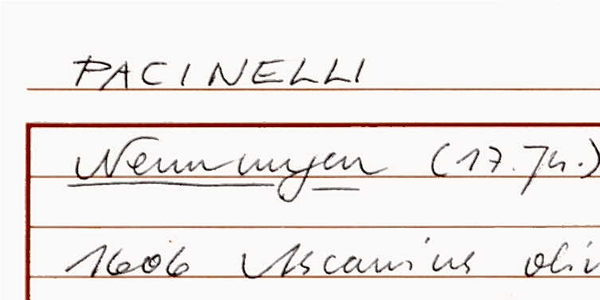 PACINELLI
Nenningen (17. Jh.)
1606 Ascanius